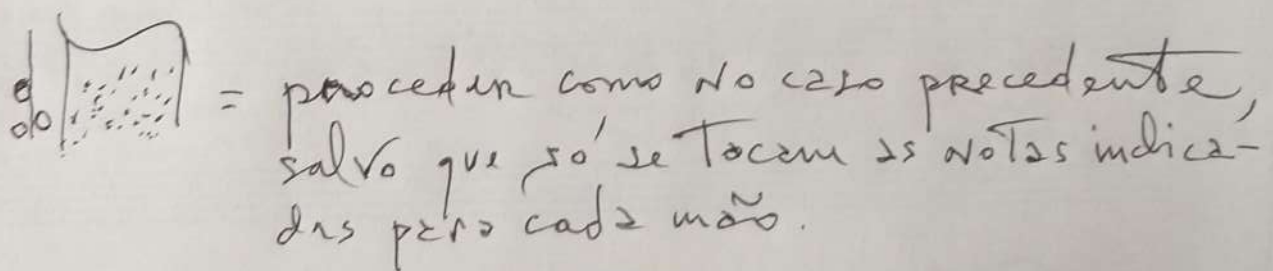 = proceder como no caso precedente,
salvo que só se tocam as notas indica-
das para cada mão.